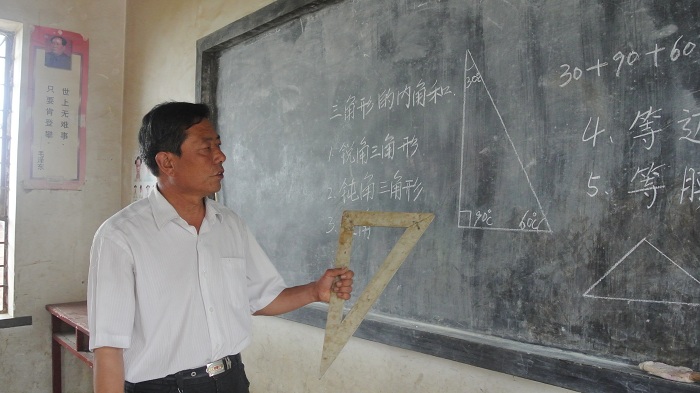 世上无难事
只要肯登攀
三角形的内角和.
1.锐角三角形
2.钝角三角形
3.
30℃
90℃
60℃
30+90+60
4、等边
5、等腰